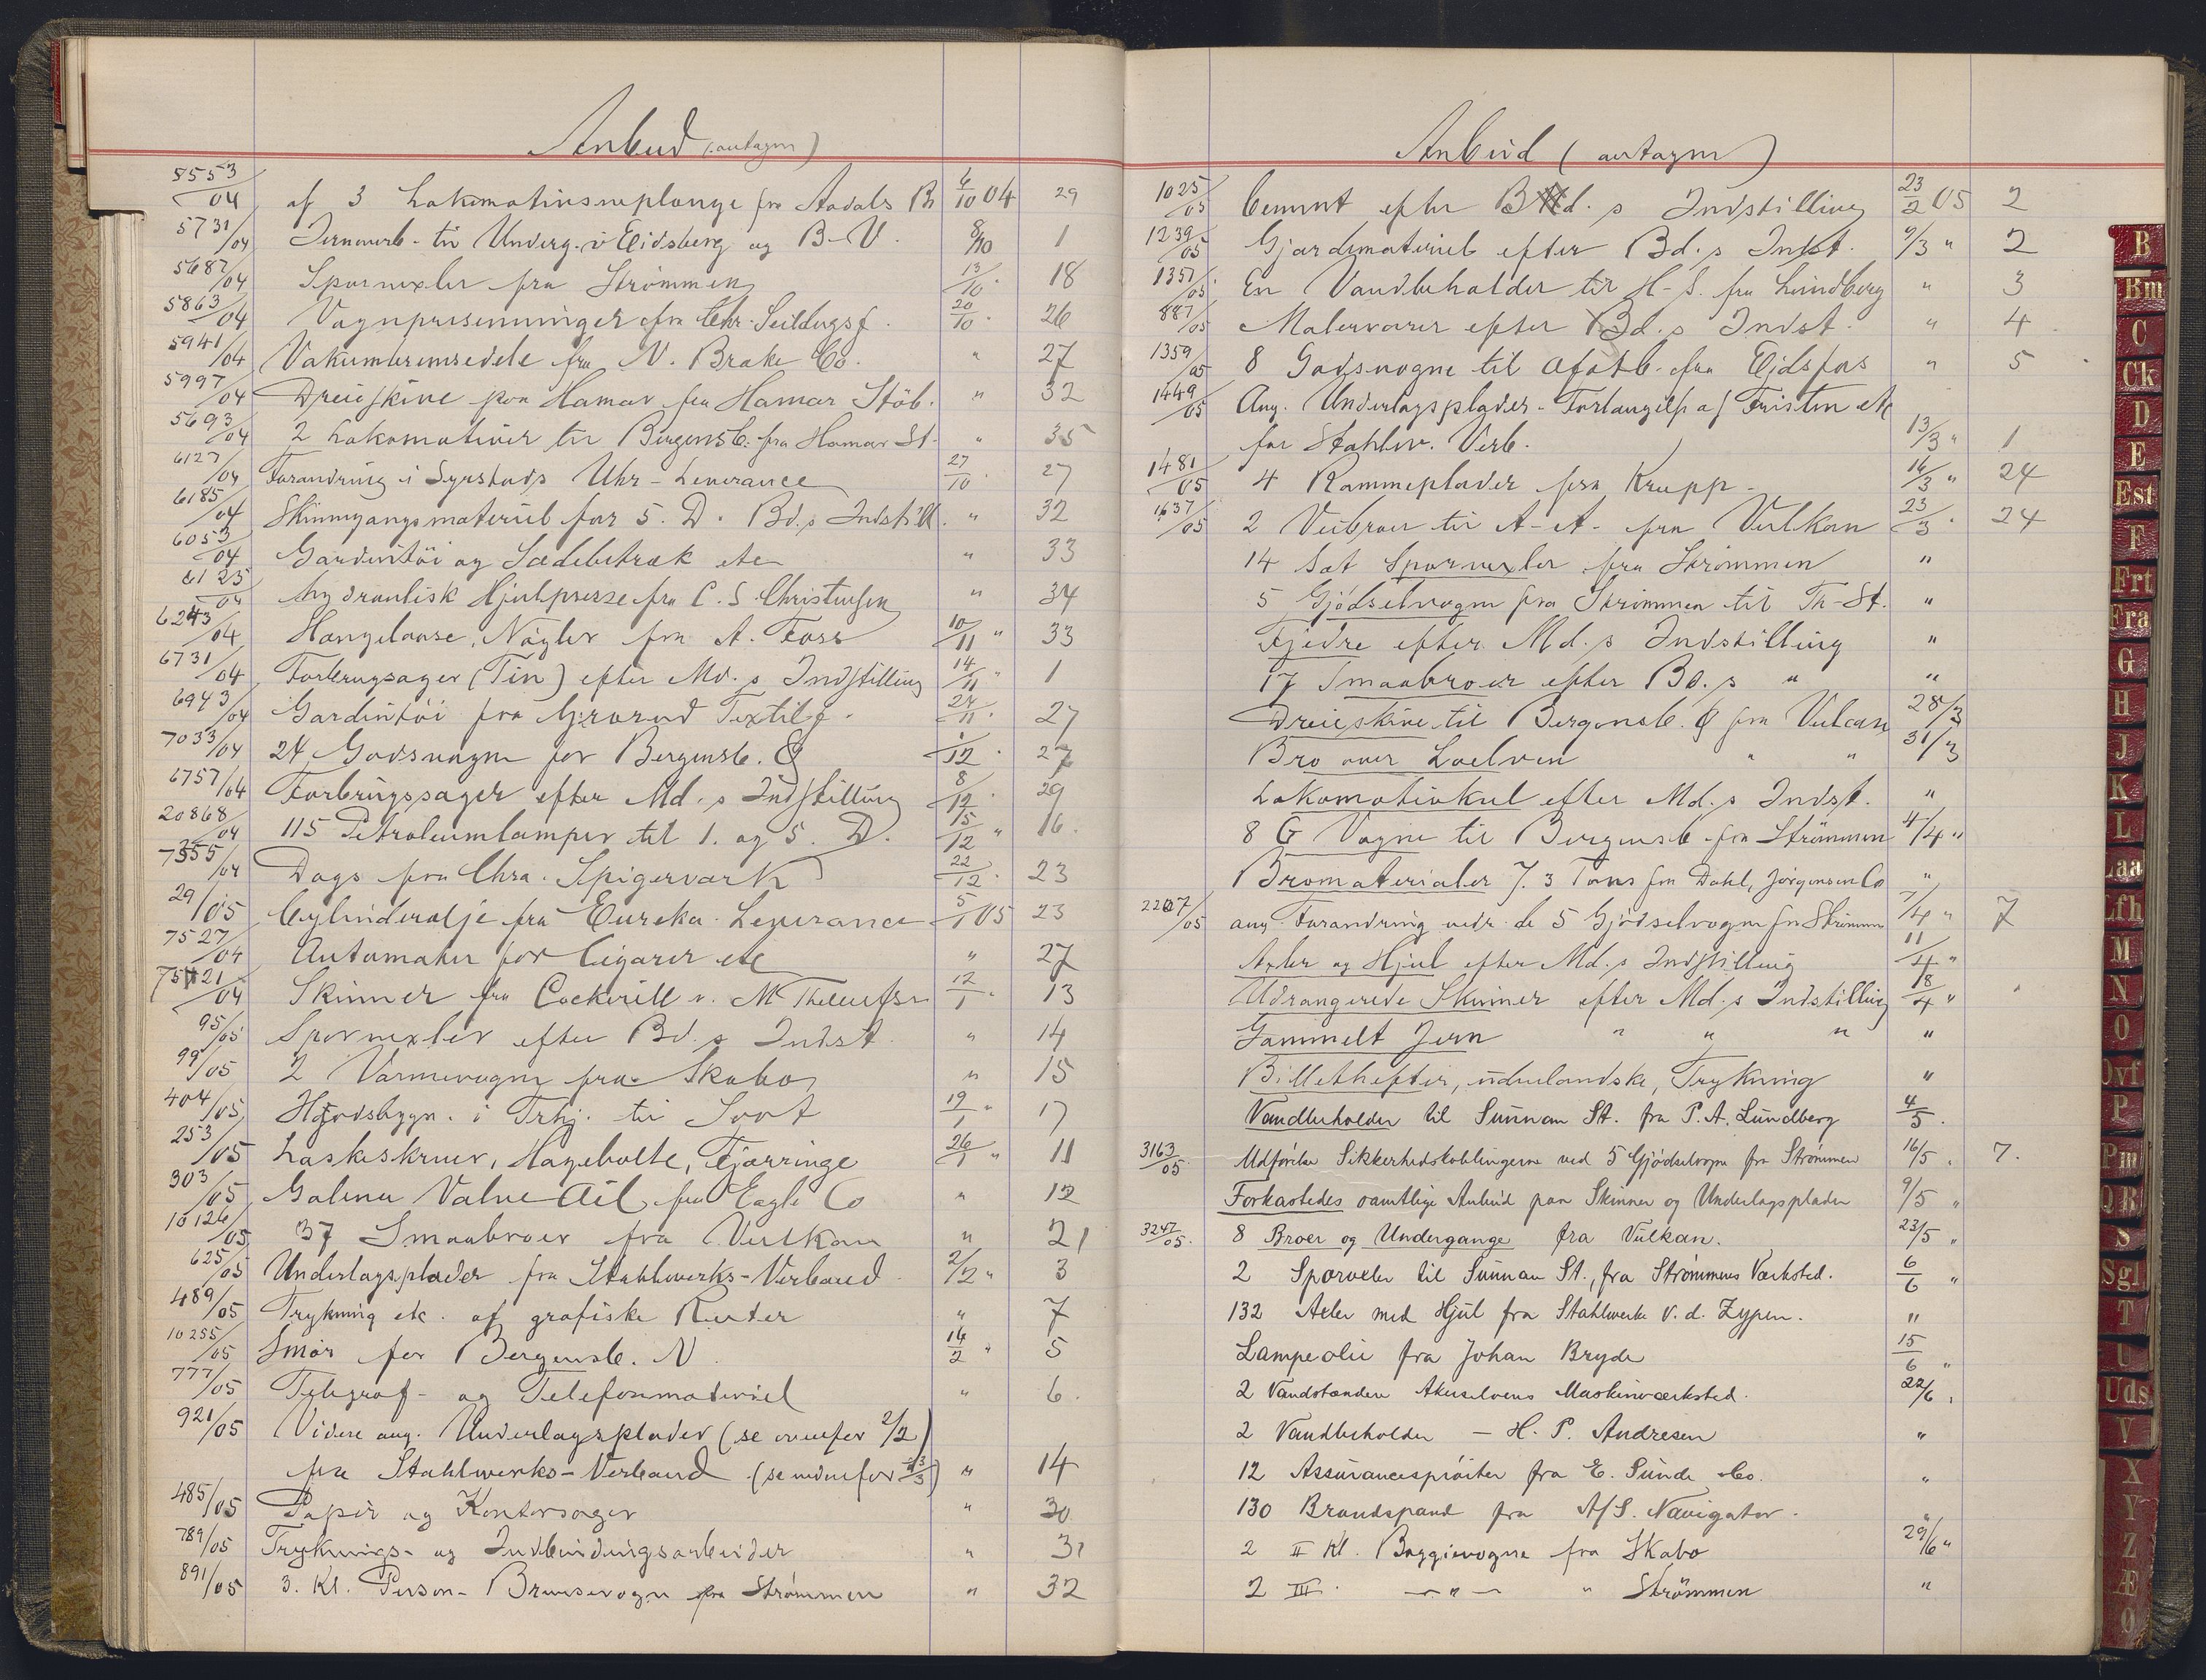 Anbud (antagne)
5553/04 af 3 Lokomotivsneplonge fra Aadals B 6/10 04 29
5731/04 Jernoverb. til Underg. i Eidsberg og B-V. 8/10 1
5687/04 Sporvexler fra Strømmen 13/10 " 18
5863/04 Vognpresenninger fra Chr. Seildugsf. 20/10 " 26
5941/04 Vakumbremsedele fra N. Brake Co. " 27
5997/04 Dreieskive paa Hamar fra Hamar Støb. " 32
5693/04 2 Lokomotiver til Bergensb. fra Hamar St. " 35
6127/04 Forandring i Syrstads Uhr-Leverance 27/10 " 27
6185/04 Skinnegangsmateriel for 5. D. Bd.s Indstill. " 32
6053/04 Gardintøi og Sædebetræk etc " 33
6125/04 hydraulisk Hjulpresse fra C. S. Christensen " 34
6243/04 Hængelaase, Nøgler fra A. Foss 10/11 " 33
6731/04 Forbrugsager (Tin) efter Md.s Indstilling 14/11 " 1
6943/04 Gardintøi fra Grorud Textilf. 24/11 " 27
7033/04 24 Godsvogne for Bergensb. Ø 1/12 " 27
6757/04 Forbrugssager efter Md.s Indstilling 8/12 " 29
20868/04 115 Petroleumlamper til 1. og 5. D. 15/12 " 16.
7355/04 Dogs fra Chra. Spigerverk 22/12 " 23
29/05 Cylinderolje fra Eureka-Leverance 5/1 05 23
7527/04 Automater for Cigarer etc " 27
7521/04 Skinner fra Cockerill v. M. Thelefsen 12/1 " 13
95/05 Sporvexler efter Bd.s Indst. " 14
99/05 2 Varmevogne fra Skabo " 15
404/05 Godsbygn. i Trhj. til Soot 19/1 " 17
253/05 Laskeskruer, Hagebolte, Fjærringe 26/1 " 11
303/05 Galena Valve Oil fra Eagle Co " 12
10126/05 37 Smaabroer fra Vulkan " 21
625/05 Underlagsplader fra Stahlwerks-Verband 2/2 " 3
489/05 Trykning etc. af grafiske Ruter " 7
10255/05 Smør for Bergensb. V. 16/2 " 5
777/05 Telegraf- og Telefonmateriel " 6.
921/05 Videre ang. Underlagsplader (se ovenfor 2/2)
fra Stahlwerks-Verband (se nedenfor 13/3) " 14
485/05 Papir og Kontorsager " 30
789/05 Tryknings- og Indbindingsarbeider " 31
891/05 3. Kl. Person-Bremsevogn fra Strømmen " 32
Anbud (antagne)
1025/05 Cement efter Bd.s Indstilling 23/2 05 2
1239/05 Gjærdemateriel efter Bd.s Indst. 9/3 " 2
1351/05 En Vandbeholder til H-S. fra Lundberg " 3
887/05 Malervarer efter Bd.s Indst. " 4
1359/05 8 Godsvogne til Ofotb. fra Eidsfos " 5
1449/05 Ang. Underlagsplader-Forlængelse af Fristen etc
for Stahlw. Verb. 13/3 " 1
1481/05 4 Rammeplader fra Krupp 16/3 " 24
1637/05 2 Veibroer til A-A- fra Vulkan 23/3 " 24
14 Sæt Sporvexler fra Strømmen "
5 Gjødselvogne fra Strømmen til Th-St. "
Fjedre efter Md.s Indstilling "
17 Smaabroer efter Bd.s " "
Dreieskive til Bergensb. Ø fra Vulcan 28/3
Bro over Loelven " " 31/3
Lokomotivkul efter Md.s Indst. "
8 G Vogne til Bergensb fra Strömmen 4/4 "
Bromaterialer 7.3 Tons fra Dahl, Jørgensen Co "
2207/05 ang. Forandring vedr. de 5 Gjødselvogne fra Strømmen 7/4 " 7
Axler og Hjul efter Md.s Indstilling 11/4 "
Udrangerede Skinner efter Md.s Indstilling 18/4 "
Gammelt Jern " " " "
Billethefter, udenlandske, Trykning "
Vandbeholder til Sunnan St. fra P. A. Lundberg 4/5.
3163/05. Udførelse Sikkerhedskoblingerne ved 5 Gjødselvogne fra Strømmen 16/5 " 7.
Forkastedes samtlige Anbud paa Skinner og Underlagsplader 9/5 "
3247/05. 8 Broer og Undergange fra Vulkan. 23/5 "
2 Sporvexler til Sunnan St., fra Strømmens Værksted. 6/6 "
132 Axler med Hjul fra Stahlwerke v. d. Zypen. "
Lampeolie fra Johan Bryde 15/6 "
2 Vandstændere Akerselvens Maskinværksted. 22/6 "
2 Vandbeholdere — H. P. Andresen "
12 Assurancesprøiter fra E. Sunde & Co. "
130 Brandspand fra A/S. Navigator. "
2 II Kl. Boggievogne fra Skabo 29/6 "
2 III " — " — " Strömmen "
B
Bm
C
Ck
D
E
Est
F
Frt
Fra
G
H
J
K
L
Laa
Lfh
M
N
O
Ovf
P
Pm
Q R
S
Sgl
T
U
Uds
V
X
Y
Z
Æ
Ø